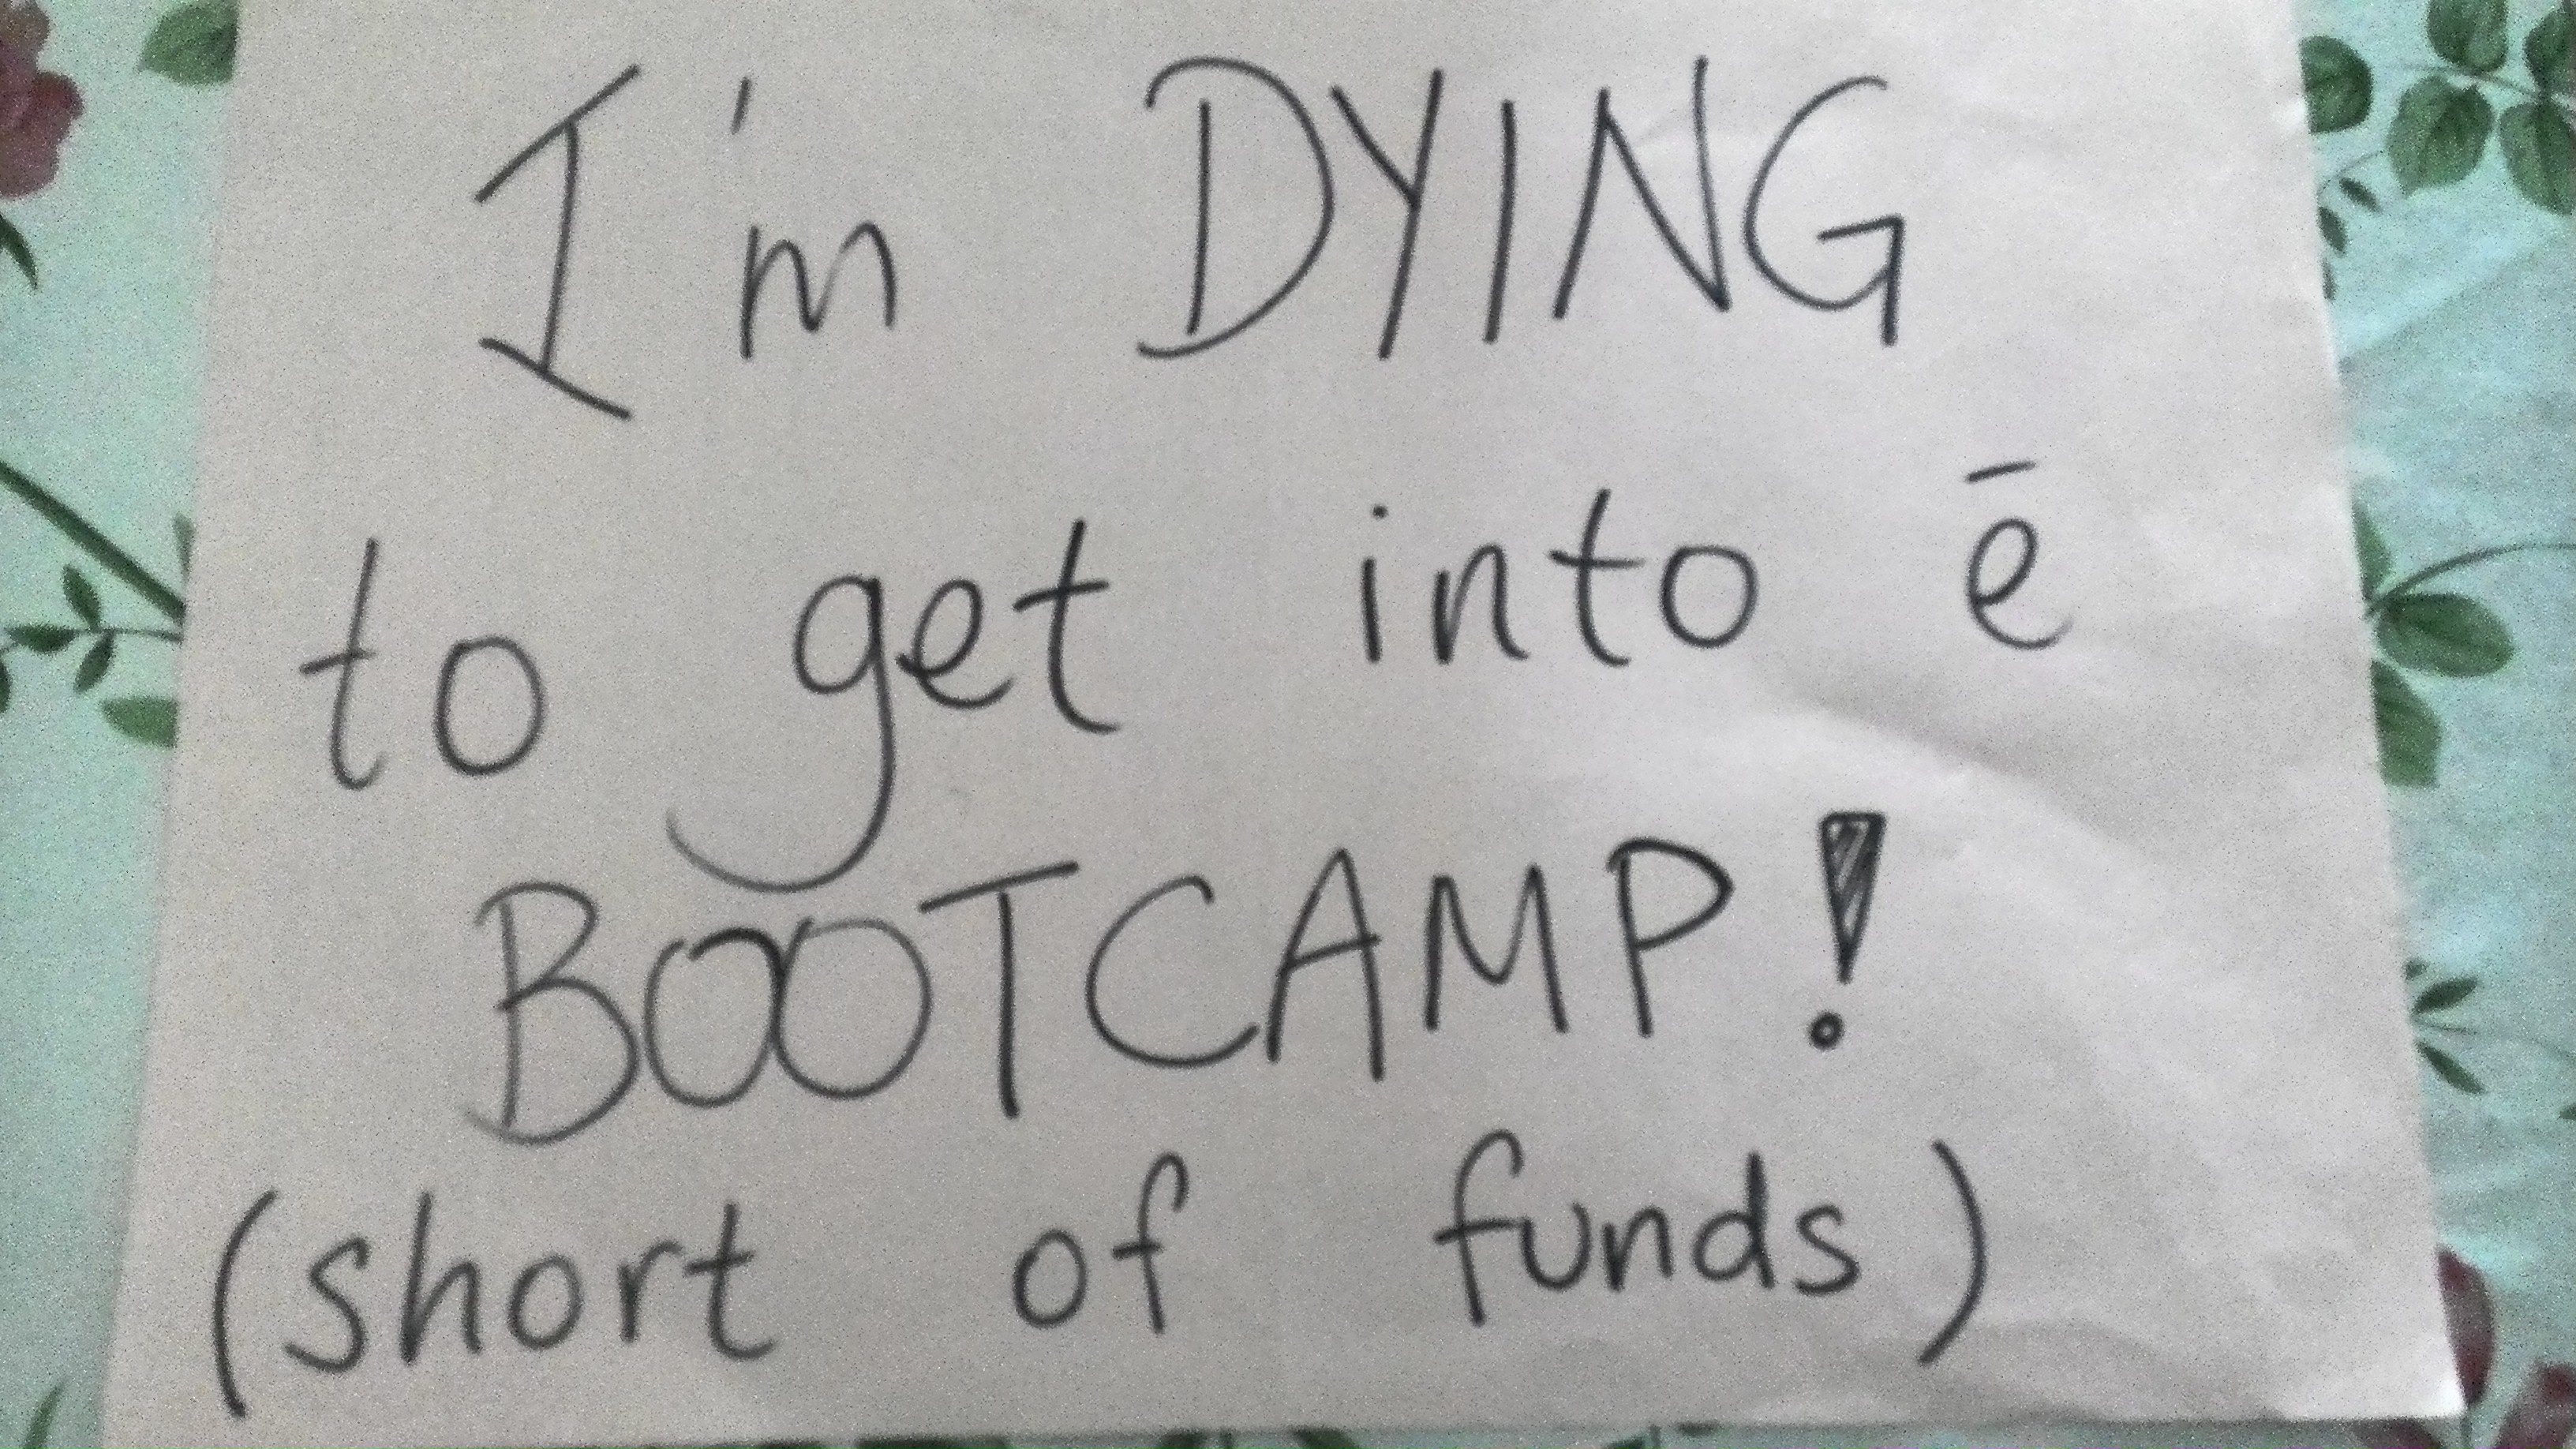 I'm DYING
to get into ē
BOOTCAMP!
(short of funds)